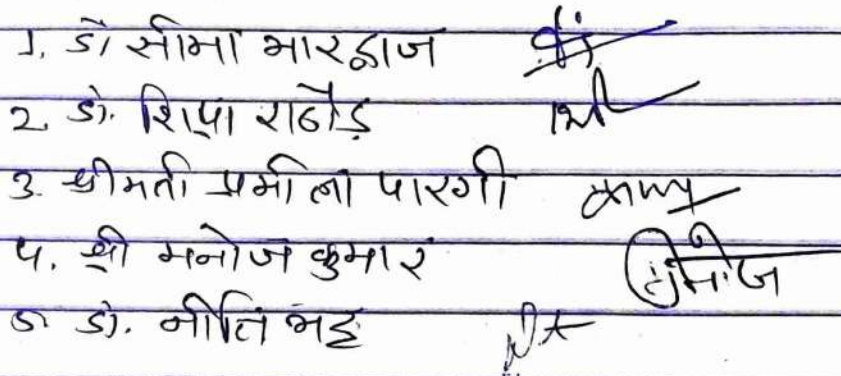 1. डॉ सीमा भारद्वाज
2. डॉ. शिप्रा राठौड़
3. श्रीमती प्रमीला पारगी
4. श्री मनोज कुमार
5. डॉ. नीति भट्ट